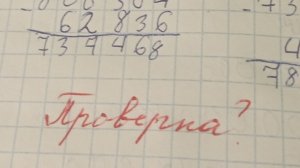 62 836
737 468
4
78
Проверка?